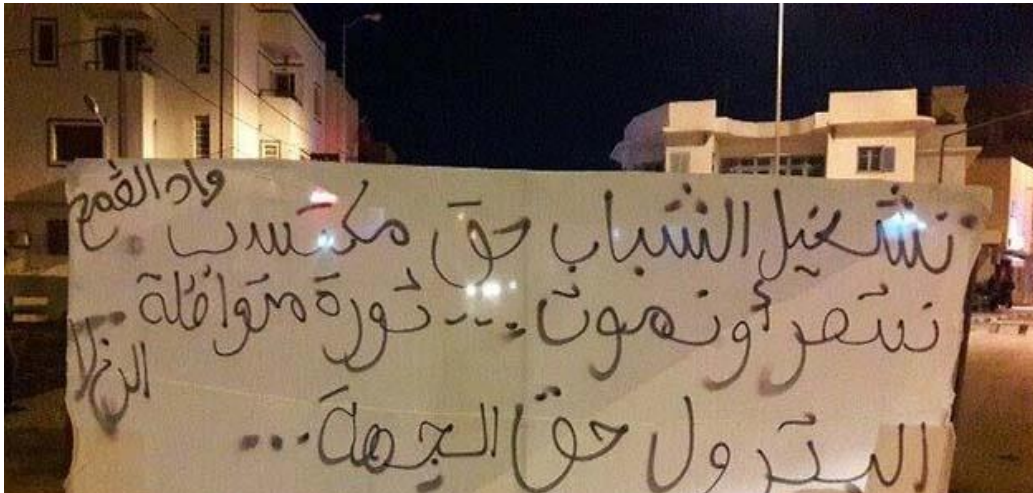 تشغيل الشباب حق مكتسب
ننتصر أو نموت... ثورة متواصلة
الرخ لا
البترول حق الجهة...